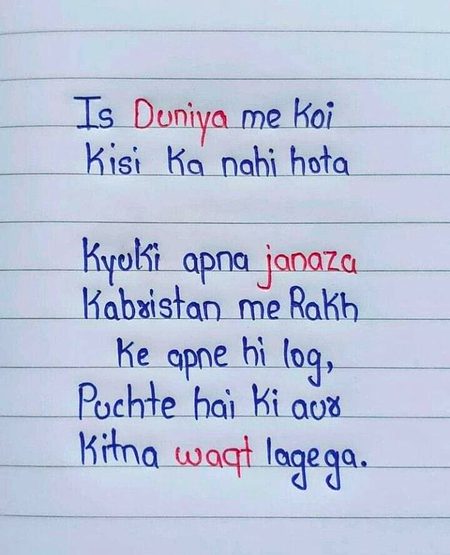 Is Duniya me koi
kisi ka nahi hota
Kyuki apna janaza
Kabristan me Rakh
ke apne hi log,
Puchte hai ki aur
kitna waqt lagega.